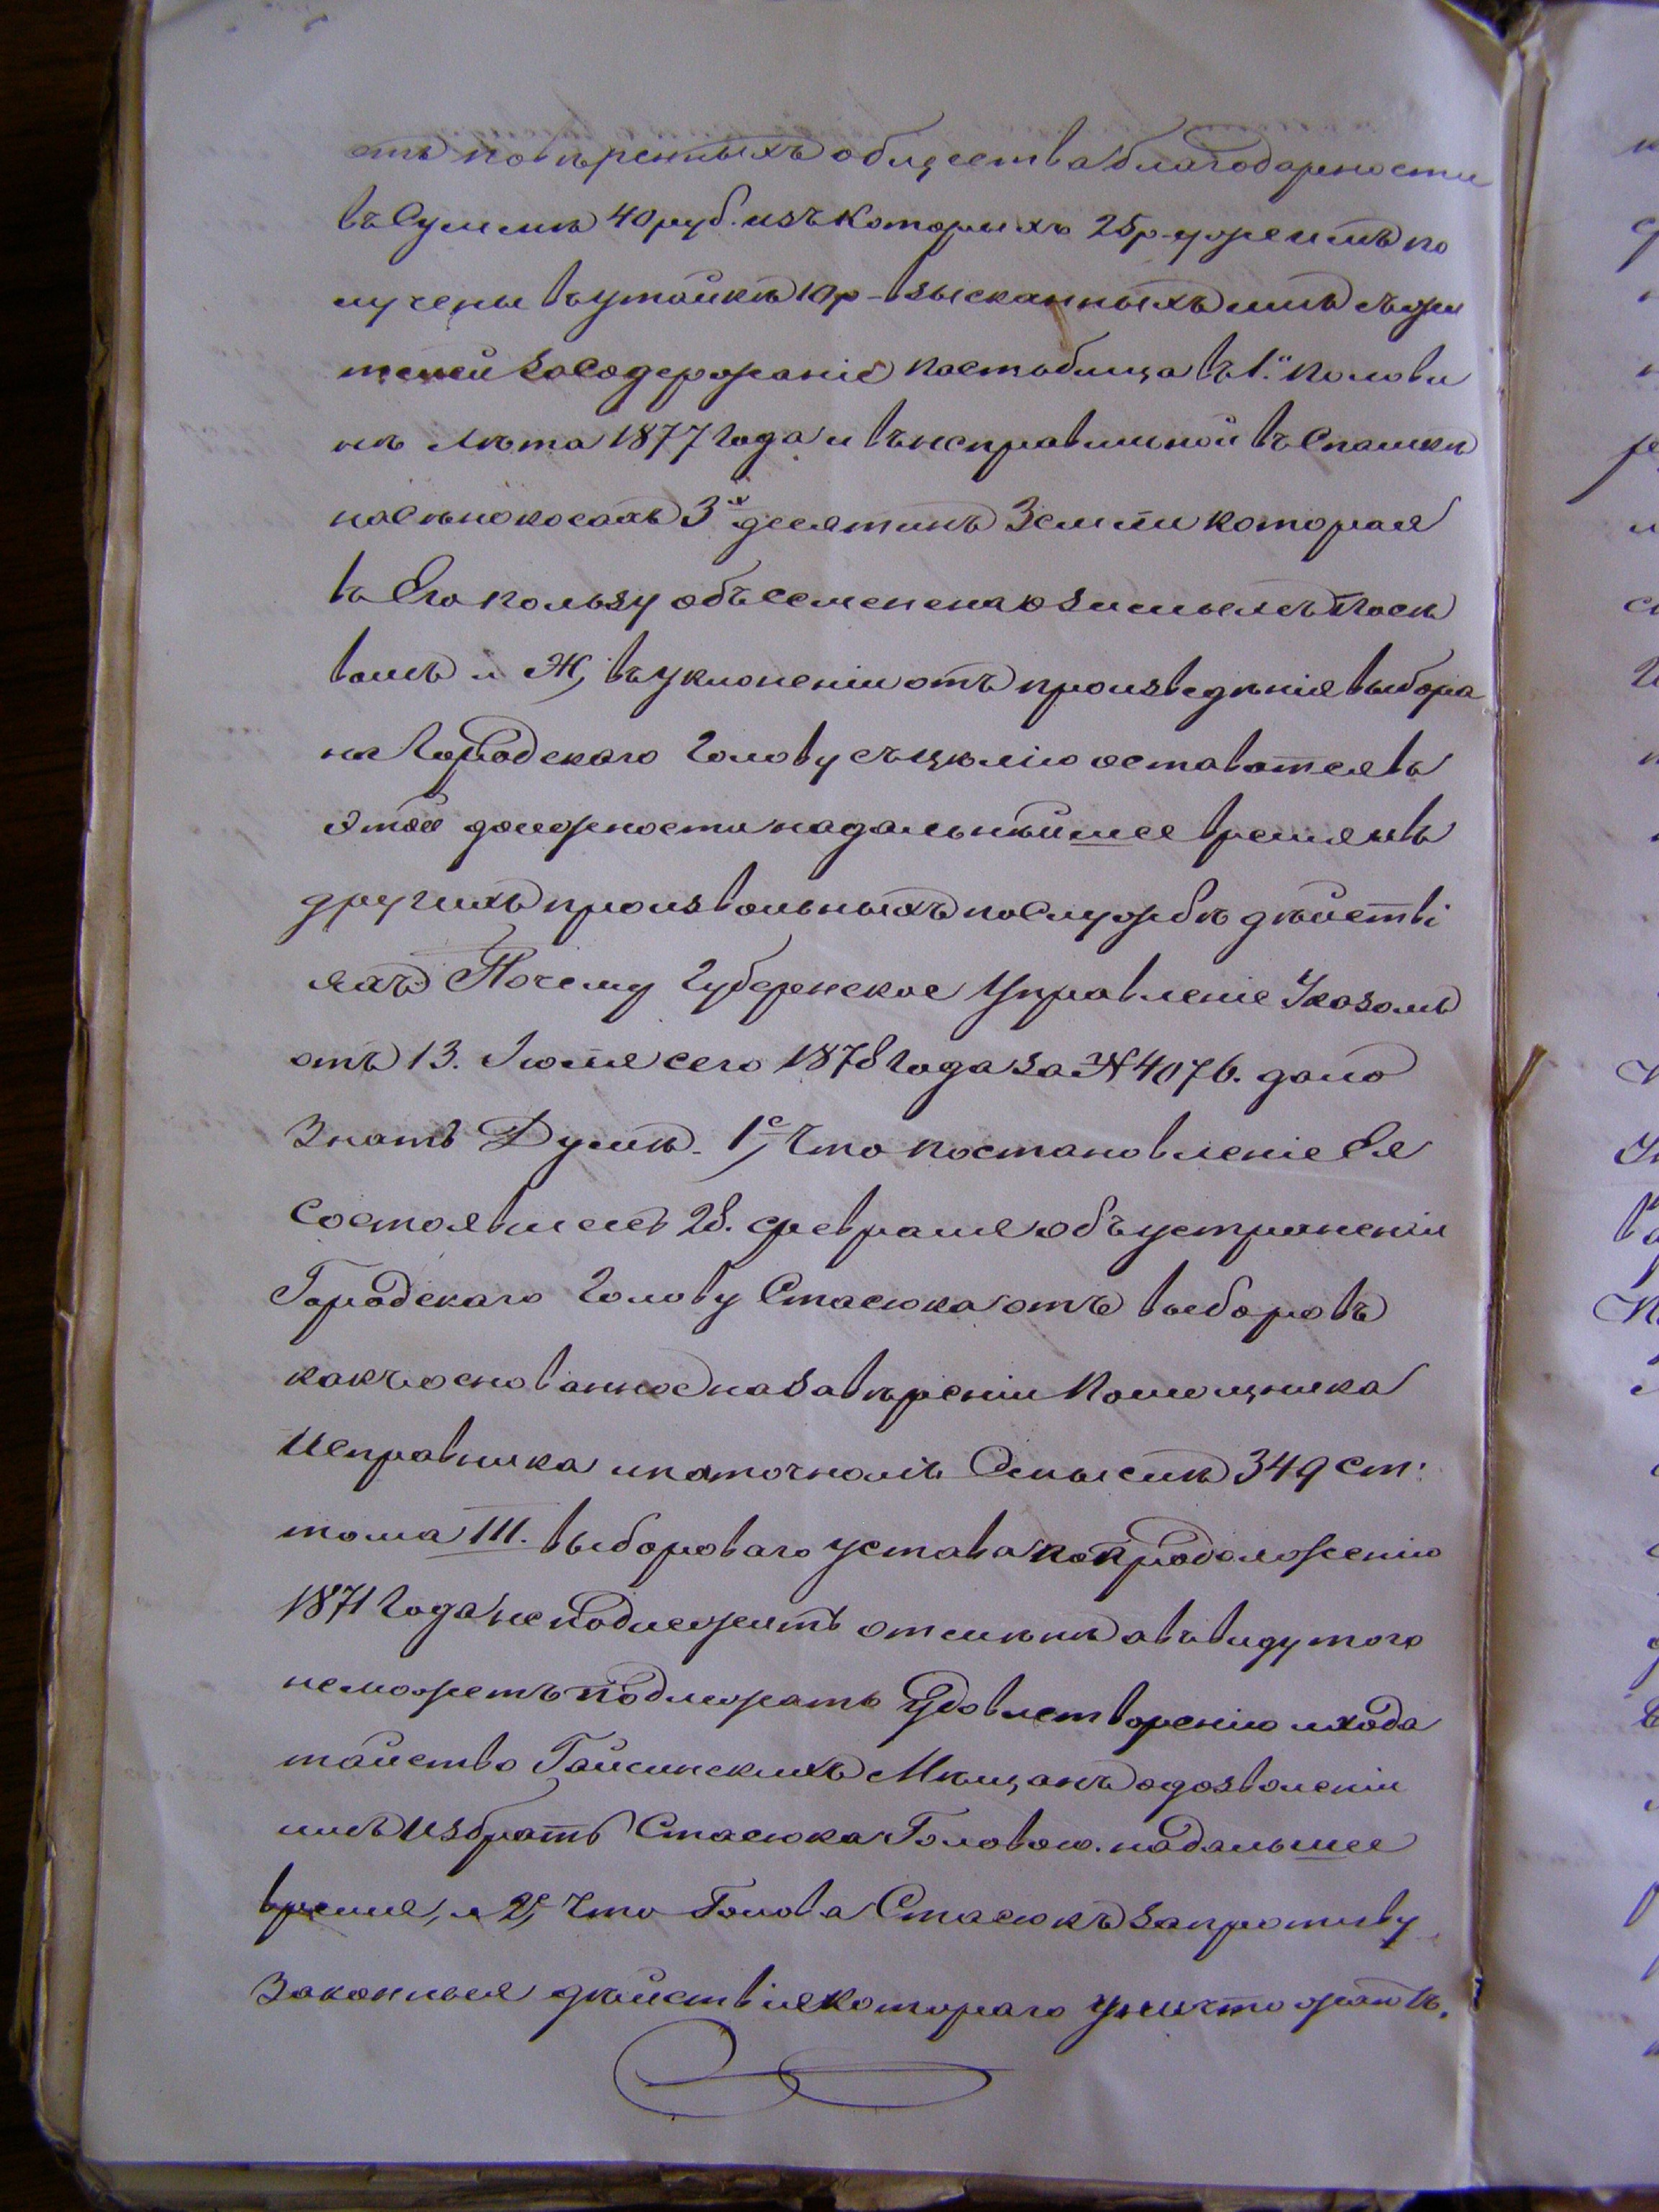 отъ повѣренныхъ общества благодарности
въ Суммѣ 40 руб. изъ которыхъ 25 р. уже имъ по
лучены въ утайкѣ 10 р - взысканныхъ имъ съ жи
телей за Содержаніе пастьбища въ 1й полови
нѣ лѣта 1877 года и въ неправильной въ Спашкѣ
на сѣнокосахъ 3х десятинъ Земли которая
въ Его пользу объсеменена озимымъ посѣ
вомъ и Ж, въ уклоненіи отъ произведѣнія выбора
на Городскаго Голову съ цѣлію оставатся въ
этой должности на дальнѣйшее время и въ
другихъ произвольныхъ по Службѣ дѣйстві
яхъ Почему Губернское Управленіе Указомъ
отъ 13. Іюля сего 1878 года за № 4076. дало
Знать Думѣ. 1е, Что постановленіе Ея
Состоявшееся 28. февраля объ устраненіи
Городскаго Голову Стасюка отъ выборовъ
какъ основанное на завѣреніи Помощника
Исправника и на точномъ Смыслѣ 349 ст:
тома III. выбороваго устава по продолженію
1871 года не подлежитъ отмѣнѣ а въ виду того
неможетъ подлежать Удовлетворенію и хода
тайство Гайсинскихъ Мѣщанъ о дозволеніи
имъ Избрать Стасюка Головою. на дальшее
время, и 2е, Что Голова Стасюкъ за противу
Законныя дѣйствія котораго уничтожать.